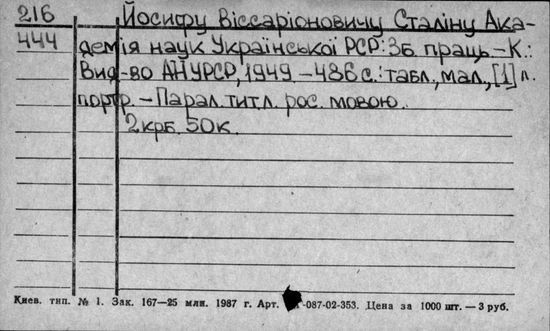 216
444
Йосифу Віссаріоновичу Сталіну Ака-
демія наук Української РСР: Зб. праць. – К.:
Вид-во АН УРСР, 1949 – 486 с.: табл., мал., [1] л.
портр. – Парал. тит. л. рос. мовою.
2 крб. 50 к.
Киев. тип. № 1. Зак. 167—25 млн. 1987 г. Арт. -087-02-353. Цена за 1000 шт. — 3 руб.